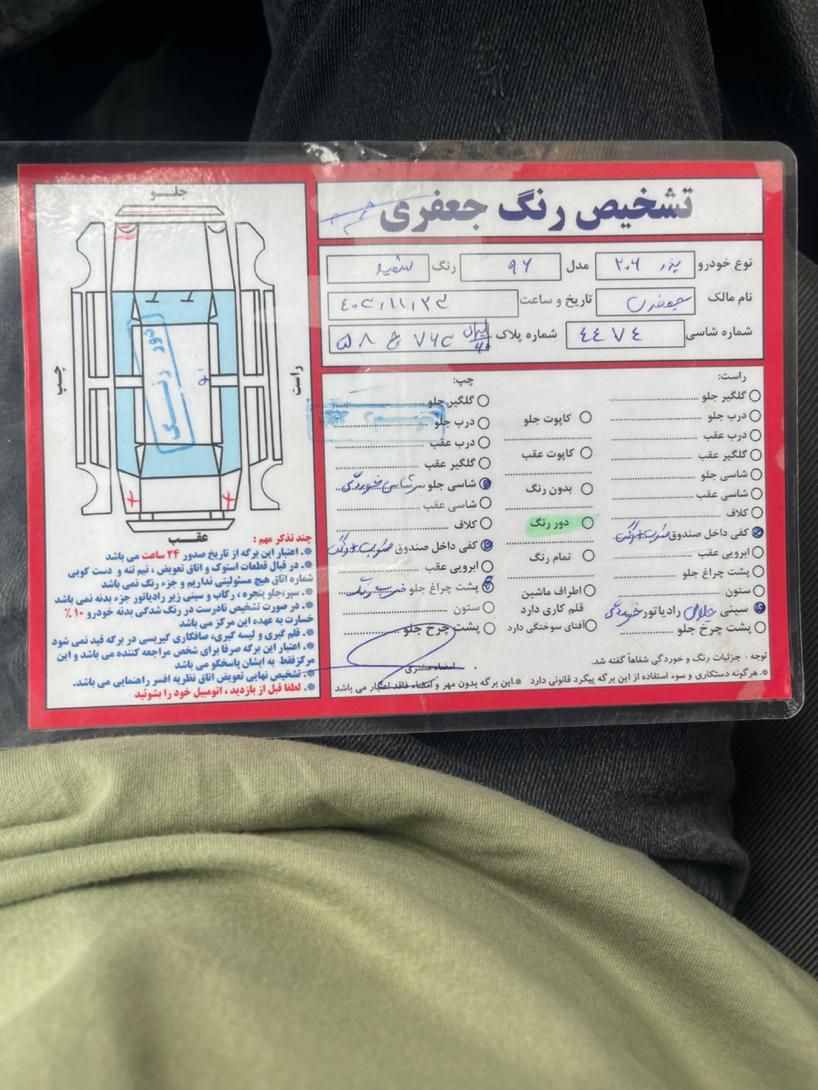 تشخیص رنگ جعفری
نوع خودرو پژو ۲۰۶ مدل ۹۶ رنگ سفید
نام مالک جعفری تاریخ و ساعت
شماره شاسی ٤٤٧٤ شماره پلاک ایران
راست:
گلگیر جلو
درب جلو
درب عقب
گلگیر عقب
شاسی جلو
شاسی عقب
کلاف
کفی داخل صندوق ضربت+رنگ
ابرویی عقب
پشت چراغ جلو
ستون
سینی جلوی رادیاتور خوردگی
پشت چرخ جلو
کاپوت جلو
کاپوت عقب
بدون رنگ
دور رنگ
تمام رنگ
اطراف ماشین
قلم کاری دارد
آفتاب سوختگی دارد
چپ:
گلگیر جلو
درب جلو
درب عقب
گلگیر عقب
شاسی جلو سرشاسی خوردگی
شاسی عقب
کلاف
کفی داخل صندوق ضربت+رنگ
ابرویی عقب
پشت چراغ جلو ضرب رنگ
ستون
پشت چرخ جلو
امضاء مشتری
توجه : جزئیات رنگ و خوردگی شفاهاً گفته شد.
*.هرگونه دستکاری و سوء استفاده از این برگه پیگرد قانونی دارد *.این برگه بدون مهر و امضاء فاقد اعتبار می باشد
جلـــو
چپ
راست
دور رنگ
عقـــب
چند تذکر مهم :
*. اعتبار این برگه از تاریخ صدور ۲۴ ساعت می باشد
*. در قبال قطعات استوک و اتاق تعویض ، نیم تنه و دست کوبی
شماره اتاق هیچ مسئولیتی نداریم و جزء رنگ نمی باشد
*. سپرجلو پنجره ، رکاب و سینی زیر رادیاتور جزء بدنه نمی باشد
*. در صورت تشخیص نادرست در رنگ شدگی بدنه خودرو ۱۰ ٪
خسارت به عهده این مرکز می باشد
*. قلم گیری و لیسه گیری، صافکاری گیریسی در برگه قید نمی شود
*. اعتبار این برگه صرفا برای شخص مراجعه کننده می باشد و این
مرکز فقط به ایشان پاسخگو می باشد
*. تشخیص نهایی تعویض اتاق نظریه افسر راهنمایی می باشد.
*. لطفا قبل از بازدید ، اتومبیل خود را بشوئید